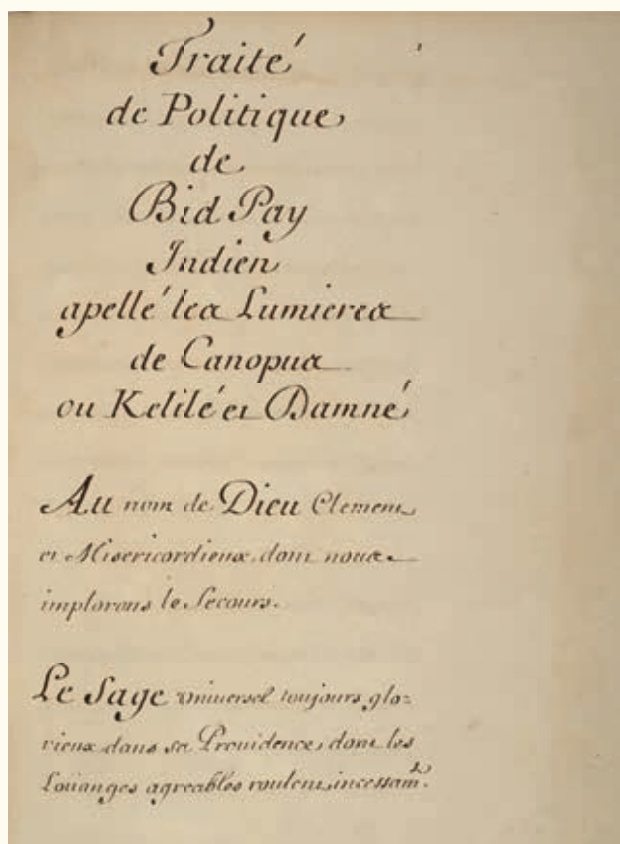 Traité
de Politique
de
Bid Pay
Indien
apellé les Lumieres
de Canopus
ou Kelilé et Damné
Au nom de Dieu Clement
et Misericordieux dont nous
implorons le Secours.
Le Sage Vniuersel toujours glo=
rieux dans sa Prouidence, dont les
Loüanges agreables roulent incessam.t